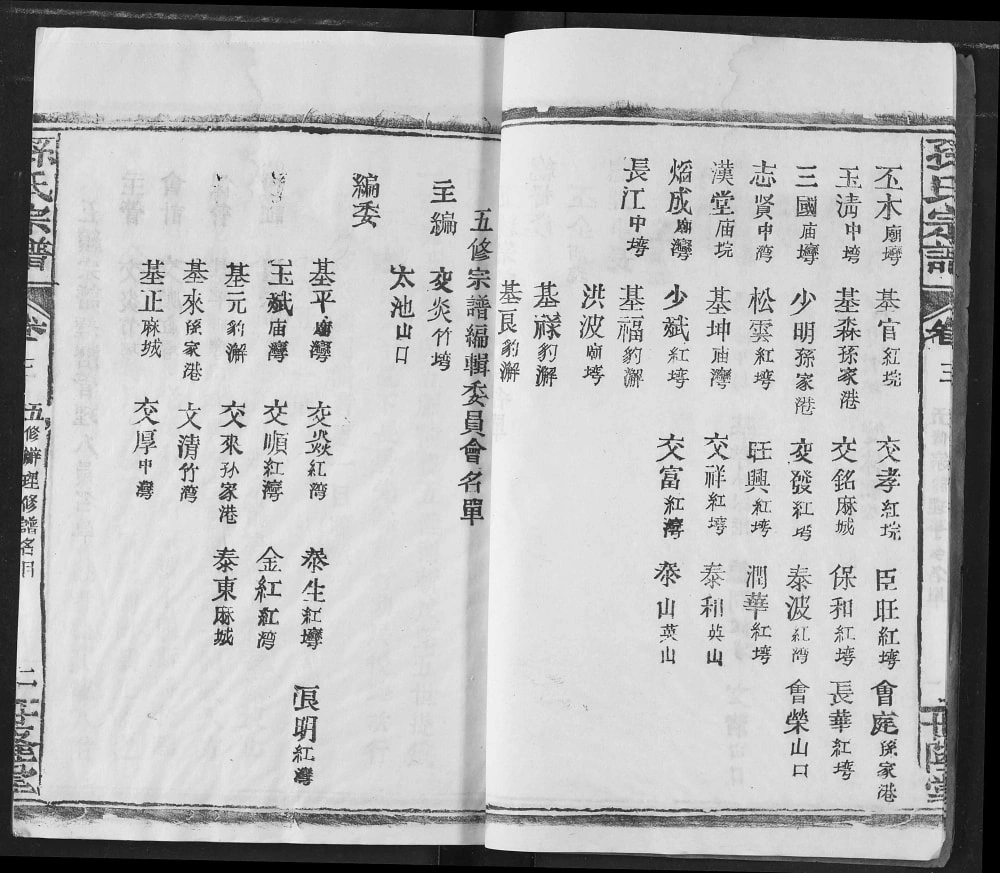 孫氏宗譜 卷 三
丕水廟塆 基官紅垸 交孝紅垸 臣旺紅塆 會庭孫家港
玉淸中塆 基森孫家港 交銘麻城 保和紅塆 長華紅塆
三國庙塆 少明孫家港 交發紅塆 泰波紅湾 會榮山口
志賢中湾 松雲紅塆 旺興紅塆 潤華紅塆
漢堂庙垸 基坤庙灣 交祥紅塆 泰和英山
焰成廟灣 少斌紅塆 交富紅灣 泰山英山
長江中塆 基福豹澥
洪波廟塆
基祿豹澥
基良豹澥
五修宗譜編輯委員會名單
主編 交炎竹塆
太池山口
編委
基平廟灣 交焱紅湾 泰生紅塆 良明紅灣
玉斌庙灣 交順紅灣 金紅紅湾
基元豹澥 交來孙家港 泰東麻城
基來孫家港 文清竹湾
基正麻城 交厚中灣
孫氏宗譜 卷 三 五修辦理修譜名目 二